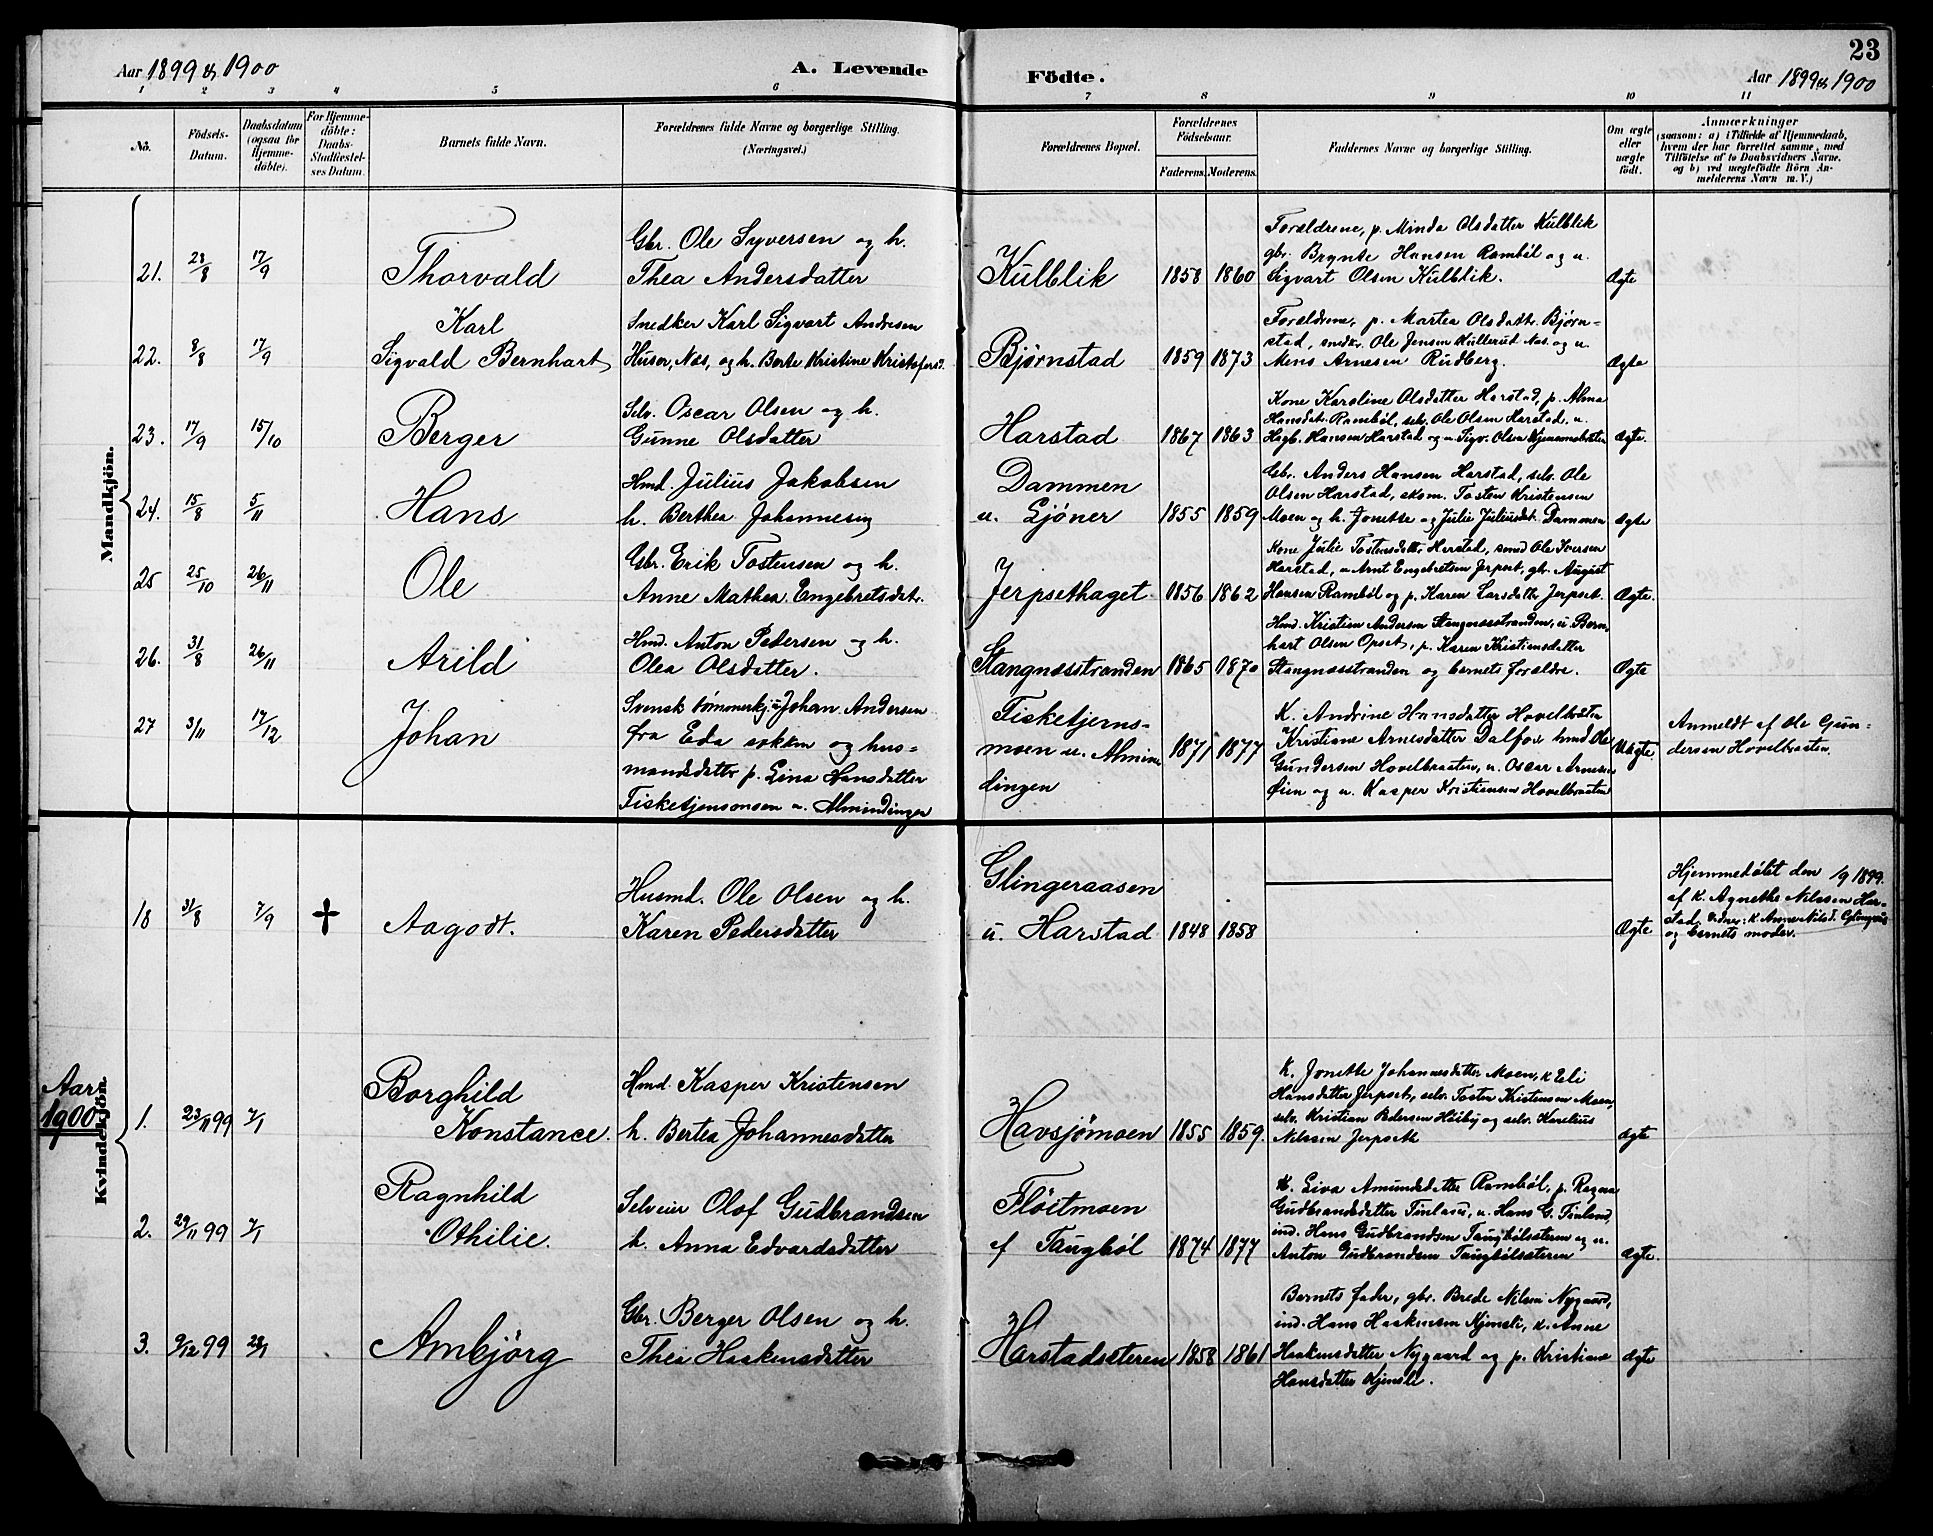 23
Aar 1899 & 1900
A. Levende
Födte.
Aar 1899 & 1900
1 2 3 4 5 6 7 8 9 10 11
No.
Födsels-
Datum.
Daabsdatum
(ogsaa for
Hjemme-
döbte).
For Hjemme-
döbte:
Daabs-
Stadfæstel-
ses Datum.
Barnets fulde Navn.
Forældrenes fulde Navne og borgerlige Stilling.
(Næringsvei.)
Forældrenes Bopæl.
Forældrenes
Födselsaar.
Faderens. Moderens.
Faddernes Navne og borgerlige Stilling.
Om ægte
eller
uægte
födt.
Anmærkninger
(saasom: a) i Tilfælde af Hjemmedaab,
hvem der har forrettet samme, med
Tilföielse af to Daabsvidners Navne,
og b) ved uægtefödte Börn An-
melderens Navn m. V.)
Mandkjön.
21. 28/8 17/9
Thorvald
Gbr. Ole Syversen og h.
Thea Andersdatter
Kulblik
1858 1860
Forældrene, p. Minda Olsdatter Kulblik
gbr. Brynte Hansen Ramböl og u.
Sigvart Olsen Kulblik.
Ægte
22. 8/8 17/9
Karl
Sigvald Bernhart
Snedker Karl Sigvart Andresen
Huser, Næs, og h. Berte Kristine Kristofersd.
Bjørnstad
1859 1873
Forældrene, p. Martea Olsdatt. Bjørn-
stad, snedkr. Ole Jensen Kullerud Næs. og u.
Mens Arnesen Rudberg.
Ægte
23. 17/9 15/10
Berger
Selv. Oscar Olsen og h.
Gunne Olsdatter
Harstad
1867 1863
Kone Karoline Olsdatter Harstad, p. Alma
Hansdat. Ramböl, selv. Ole Olsen Harstad, u.
Hagb. Hansen Harstad og u. Sigv. Olsen
Ægte.
24. 15/8 5/11
Hans
Hmd. Julius Jakobsen
h. Berthea Johannesen
Dammen
u. Sjöner
1855 1859
Gbr. Anders Hansen Harstad, selv. Ole
Olsen Harstad, skom. Tosten Kristensen
Moen og h. Jonette og Julie Juliusdt. Dammen
Ægte
25 25/10 26/11
Ole
Gbr. Erik Tostensen og h.
Anne Mathea Engebretsdat.
Jerpsethaget
1856 1862
Kone Julie Tostensdatter Harstad, smed Ole Iversen
Harstad, u. Arnt Engebretsen Jerpset, gbr. August
Hansen Ramböl og p. Karen Larsdatt. Jerpset.
Ægte.
26. 31/8 26/11
Arild
Hmd. Anton Pedersen og h.
Olea Olsdatter.
Stangnæsstranden
1865 1870
Hmd. Kristian Andersen Stangnæsstranden, u. Bern-
hart Olsen Opset, p. Karen Kristiansdatter
Stangnæsstranden og barnets forældre.
Ægte
27 3/11 17/12
Johan
Svensk tömmerkj. u. Johan Andersen
fra Eda sokken og hus-
mandsdatter p. Lina Hansdatter
Fisketjernsmoen u. Almindingen
Fisketjerns-
moen u. Almin-
dingen
1871 1877
K. Andrine Hansdatter Hovelbraaten
Kristiane Arnesdatter Dalfos hmd Ole
Gundersen Hovelbraaten, u. Oscar Arnesen
Øien og u. Kasper Kristiansen Hovelbraaten
Uægte.
Anmeldt af Ole Gun-
dersen Hovelbraaten.
Kvindekjön.
18 31/8 7/9 ✝
Aagodt.
Husmd. Ole Olsen og h.
Karen Pedersdatter
Glingeraasen
u. Harstad
1848 1858
Ægte
Hjemmedöbt den 1/9 1899.
af K. Agnethe Nilssen Har-
stad. Vidner: K. Anne Nilsd.
og barnets moder.
Aar
1900
1. 23/11 99 7/1
Borghild
Konstance.
Hmd. Kasper Kristensen
h. Bertea Johannesdatter
Havsjömoen
1855 1859
K. Jonette Johannesdatter Moen, K Eli
Hansdatter Jerpset, selv. Tosten Kristensen Moen,
selv. Kristian Pedersen Höiby og selv. Karelius
Nilssen Jerpseth
Ægte
2. 29/11 99 7/1
Ragnhild
Othilie.
Selveier Olof Gudbrandsen
h. Anna Edvardsdatter
Flöitmoen
af Taugböl
1874 1877
K. Liva Amundsdatter Ramböl, p. Ragna
Gudbrandsdatter Finland, u. Hans G. Finland,
ind. Hans Gudbrandsen Taugbölsæteren og u.
Anton Gudbrandsen Taugbölsæteren
Ægte.
3. 9/12 99 28/1
Ambjörg
Gbr. Berger Olsen og h.
Thea Haakensdatter
Harstadsæteren
1858 1861
Barnets fader, gbr. Brede Nilsen Nygaard,
ind. Hans Haakensen Kjensli, K. Anne
Haakensdatter Nygaard og p. Kristiane
Hansdatter Kjensli.
Ægte